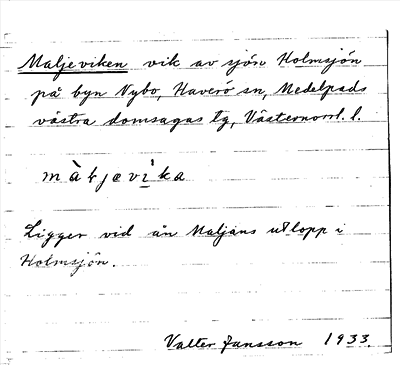 Maljeviken vik av sjön Holmsjön
på byn Nybo, Haverö sn, Medelpads
västra domsagas tg, Västernorrl. l.
Ligger vid ån Maljans utlopp i
Holmsjön.
Valter Jansson 1933.